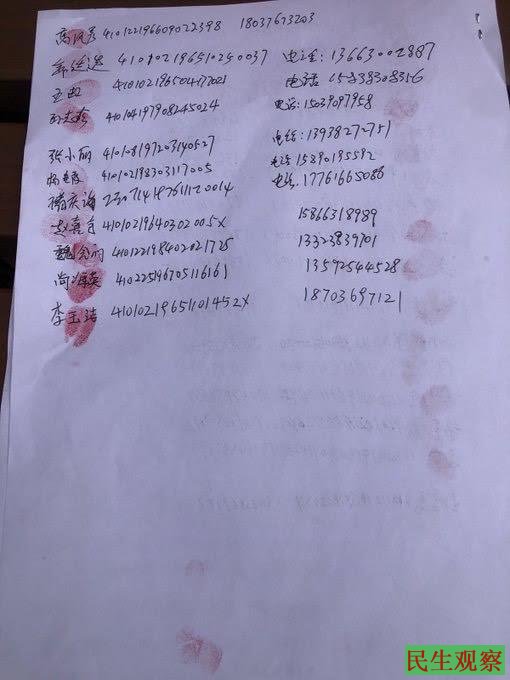 高 410122196609022398 18037673203
410102196510250037 电话: 13663002887
王 410102196504177021 电话 15838308356
410104197908245024 电话: 15039097958
张小丽 410108197203140527 电话: 13938272751
410102198303117005 电话 15890195592
电话: 17761665086
赵喜 41010219640302005X 15866318989
魏 410122198402021725 13323839701
尚海英 410225196705116161 13592544528
李玉洁 41010219651101452X 18703697121
民生观察